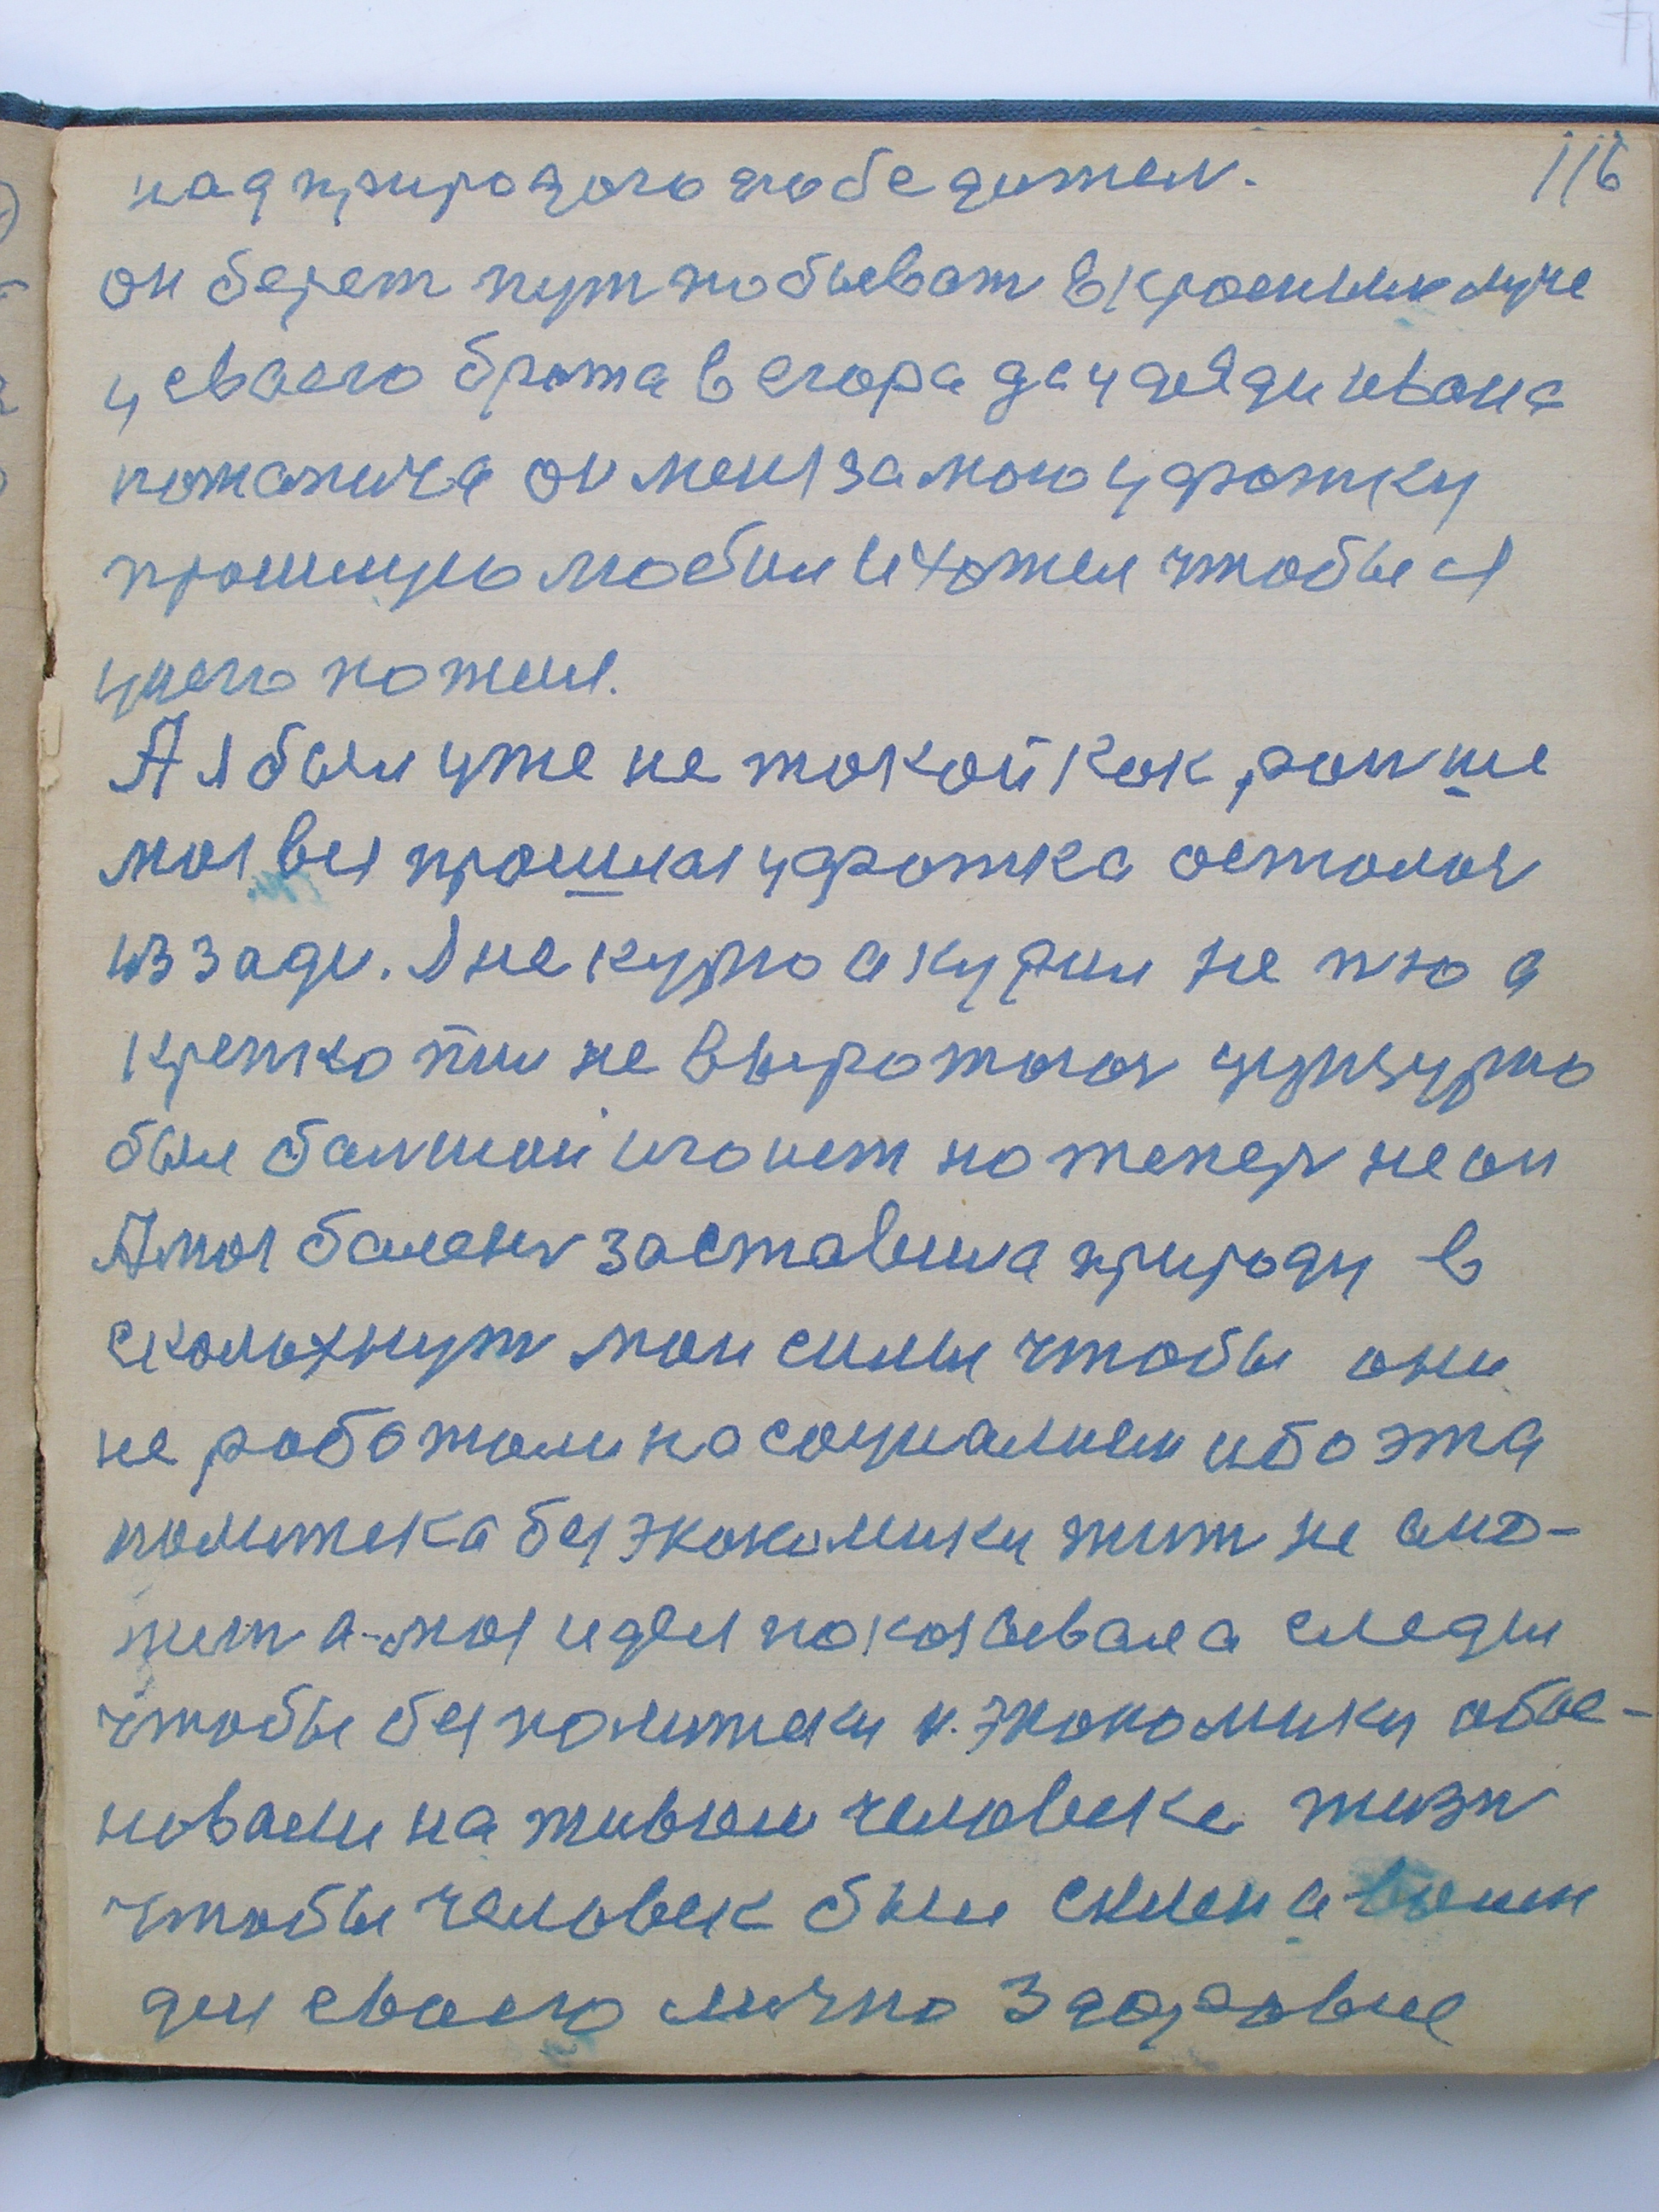 116
над природою победител.
он берет пут побыват в красным луче
у своего брата в егора да у дяди ивана
потапича он меня за мою ухватку
прошлую любил и хотел чтобы я
унего пожил.
А я был уже не такой как раньше
моя вся прошлая ухватка осталася
иззади. Я не курю а курил не пю а
крепко пил не выроатался
был балшой игонет но теперь не он
А моя балезнь заставила природу в
сколохнут мои силы чтобы они
не работали на социализм ибо эта
политека без экономики жит не смо-
жит а моя идея показывала следы
чтобы без политеки и. экономики обос-
новали на живым человеке жизн
чтобы человек был силен а воин
для своего лично здоровие